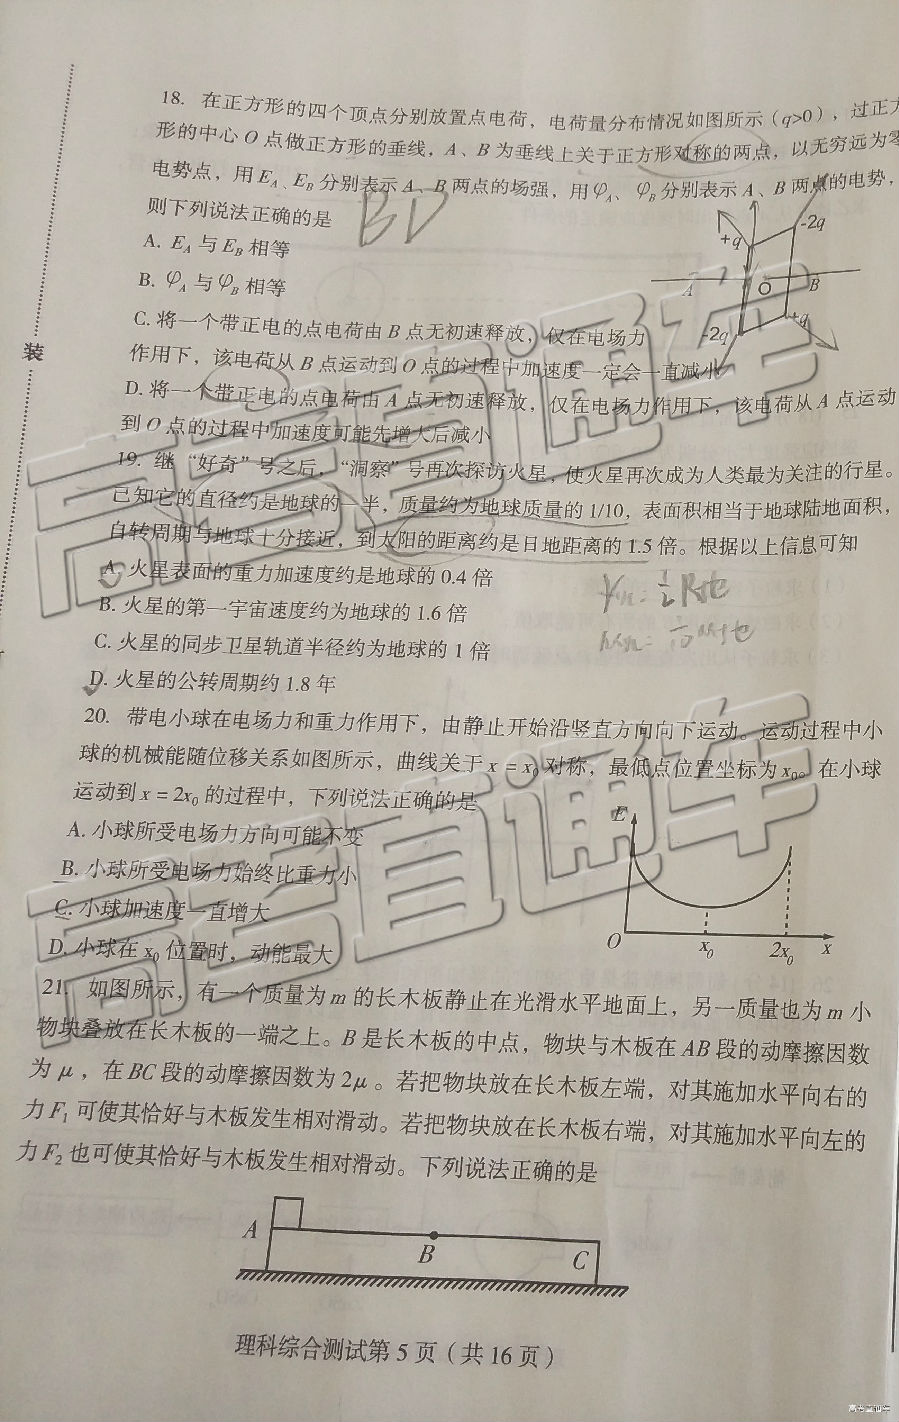 18. 在正方形的四个顶点分别放置点电荷，电荷量分布情况如图所示（q>0），过正方
形的中心 O 点做正方形的垂线，A、B 为垂线上关于正方形对称的两点，以无穷远为零
电势点，用 E_A、E_B 分别表示 A、B 两点的场强，用 φ_A、φ_B 分别表示 A、B 两点的电势，
则下列说法正确的是
BD
A. E_A 与 E_B 相等
B. φ_A 与 φ_B 相等
C. 将一个带正电的点电荷由 B 点无初速释放，仅在电场力
作用下，该电荷从 B 点运动到 O 点的过程中加速度一定会一直减小
D. 将一个带正电的点电荷由 A 点无初速释放，仅在电场力作用下，该电荷从 A 点运动
到 O 点的过程中加速度可能先增大后减小
+q
-2q
A
O
B
-2q
+q
装
19. 继“好奇”号之后，“洞察”号再次探访火星，使火星再次成为人类最为关注的行星。
已知它的直径约是地球的一半，质量约为地球质量的 1/10，表面积相当于地球陆地面积，
自转周期与地球十分接近，到太阳的距离约是日地距离的 1.5 倍。根据以上信息可知
A. 火星表面的重力加速度约是地球的 0.4 倍
B. 火星的第一宇宙速度约为地球的 1.6 倍
C. 火星的同步卫星轨道半径约为地球的 1 倍
D. 火星的公转周期约 1.8 年
20. 带电小球在电场力和重力作用下，由静止开始沿竖直方向向下运动。运动过程中小
球的机械能随位移关系如图所示，曲线关于 x = x₀ 对称，最低点位置坐标为 x₀。在小球
运动到 x = 2x₀ 的过程中，下列说法正确的是
A. 小球所受电场力方向可能不变
B. 小球所受电场力始终比重力小
C. 小球加速度一直增大
D. 小球在 x₀ 位置时，动能最大
E
O
x₀
2x₀
x
21. 如图所示，有一个质量为 m 的长木板静止在光滑水平地面上，另一质量也为 m 小
物块叠放在长木板的一端之上。B 是长木板的中点，物块与木板在 AB 段的动摩擦因数
为 μ，在 BC 段的动摩擦因数为 2μ。若把物块放在长木板左端，对其施加水平向右的
力 F₁ 可使其恰好与木板发生相对滑动。若把物块放在长木板右端，对其施加水平向左的
力 F₂ 也可使其恰好与木板发生相对滑动。下列说法正确的是
A
B
C
理科综合测试第 5 页（共 16 页）
高考直通车
高考直通车
高考直通车